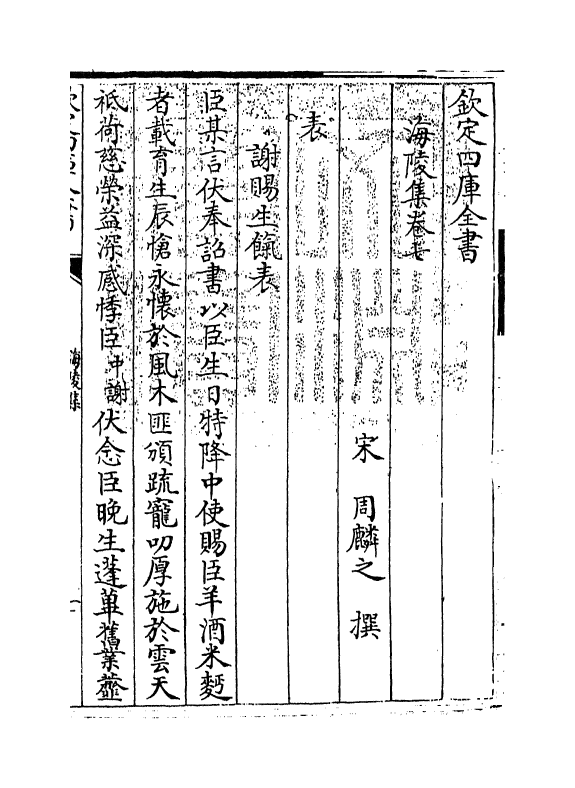 欽定四庫全書
海陵集卷七
宋 周麟之 撰
表
謝賜生餼表
臣某言伏奉詔書以臣生日特降中使賜臣羊酒米麫
者載育生辰愴永懷於風木匪頒疏寵叨厚施於雲天
祗荷慈榮益深感悸臣中謝伏念臣晩生蓬蓽舊業虀
海陵集